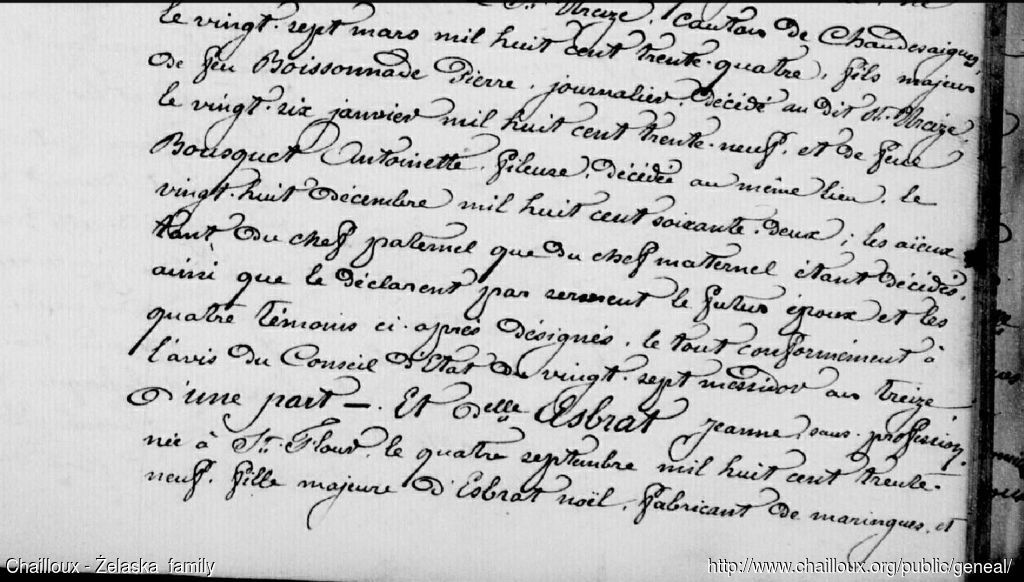 St. Urcize, Canton de Chaudesaigues,
le vingt-sept mars mil huit cent trente-quatre, fils majeur
de feu Boissonnade Pierre, journalier, décédé au dit St. Urcize
le vingt-six janvier mil huit cent trente-neuf, et de feue
Bousquet Antoinette, fileuse, décédée au même lieu, le
vingt-huit Décembre mil huit cent soixante-deux; les aïeux
tant du chef paternel que du chef maternel étant décédés,
ainsi que le déclarent par serment le futur époux et les
quatre témoins ci-après désignés, le tout conformément à
l'avis du Conseil d'Etat du vingt-sept messidor an treize,
D'une part —. Et Delle Esbrat Jeanne, sans profession,
née à St. Flour, le quatre septembre mil huit cent trente-
neuf, fille majeure d'Esbrat noël, fabricant de maringues, et
Chailloux - Żelaska family
http://www.chailloux.org/public/geneal/